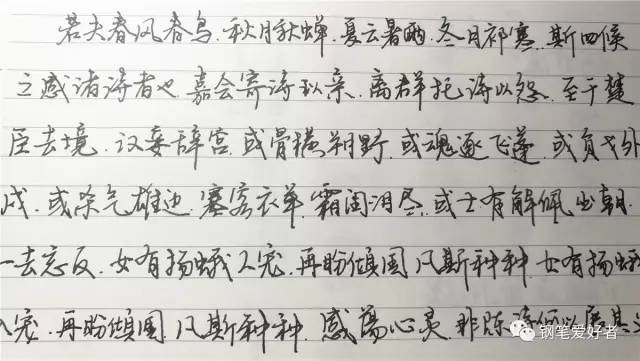 若夫春风春鸟.秋月秋蝉.夏云暑雨.冬月祁寒.斯四侯
之感诸诗者也.嘉会寄诗以亲.离群托诗以怨.至于楚
臣去境.汉妾辞宫.或骨横朔野.或魂逐飞蓬.或负戈外
戍.或杀气雄边.塞客衣单.霜闺泪尽.或士有解佩出朝.
一去忘反.女有扬蛾入宠.再盼倾国.凡斯种种女有扬蛾
入宠.再盼倾国.凡斯种种.感荡心灵.非陈诗何以展其
钢笔爱好者